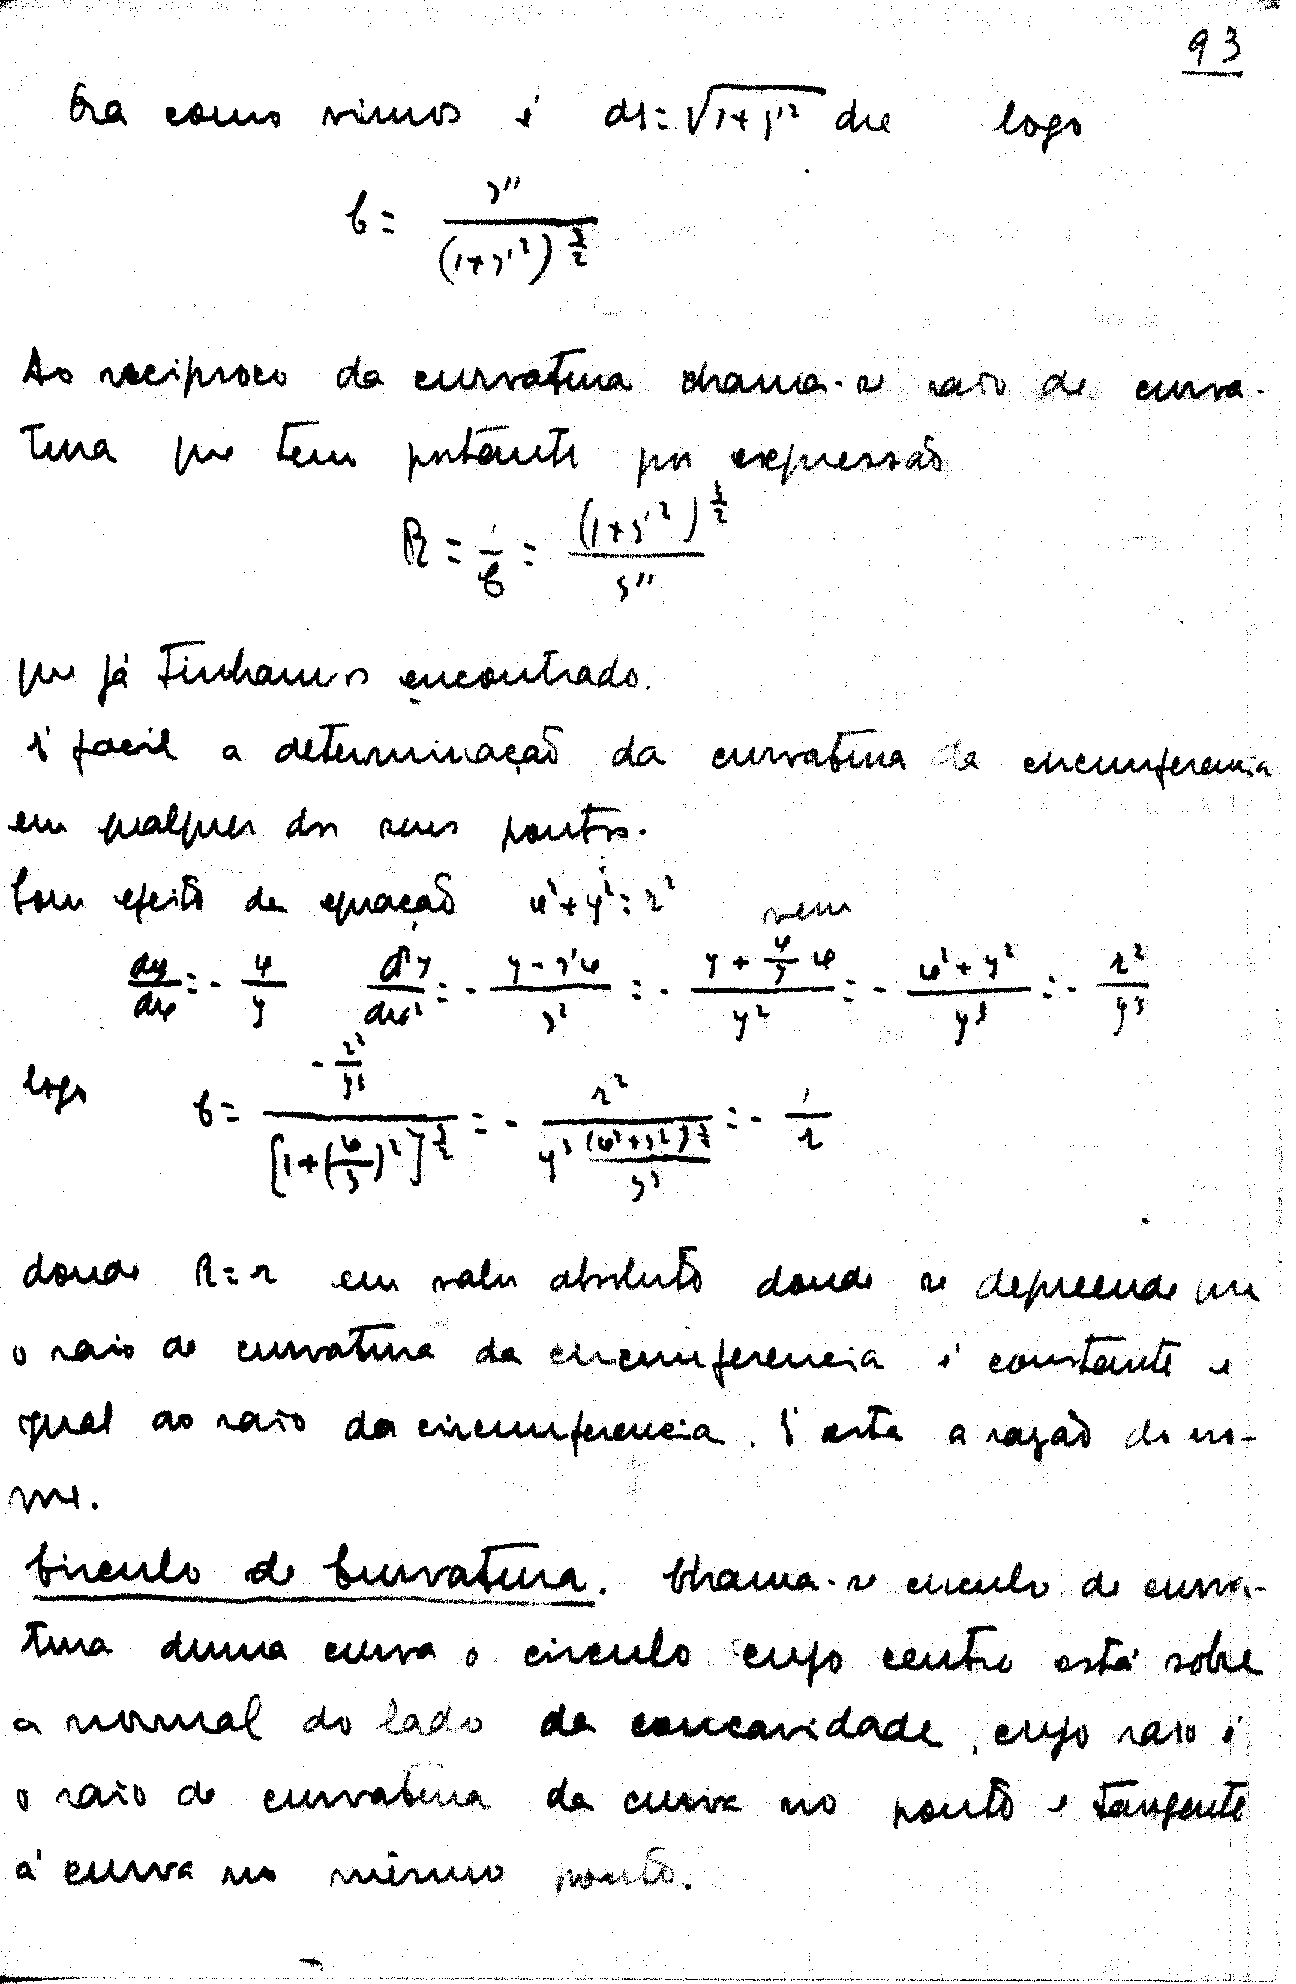 93
Ora como vimos é ds = √(1+y'²) dx logo
C = y'' / (1+y'²)^(3/2)
Ao reciproco da curvatura chama-se raio de curva-
tura que tem portanto por expressão
R = 1/C = (1+y'²)^(3/2) / y''
que já tinhamos encontrado.
É facil a determinação da curvatura da circumferencia
em qualquer dos seus pontos.
Com efeito da equação x²+y²=r² vem
dy/dx = - x/y d²y/dx² = - (y - y'x)/y² = - (y + (x/y) x)/y² = - (x²+y²)/y³ = - r²/y³
logo C = (- r²/y³) / [1+(x/y)²]^(3/2) = - r² / (y³ (x²+y²)^(3/2)/y³) = - 1/r
donde R = r em valor absoluto donde se depreende que
o raio de curvatura da circumferencia é constante e
igual ao raio da circumferencia. É esta a razão do no-
me.
Circulo de Curvatura. Chama-se circulo de curva-
tura duma curva o circulo cujo centro está sobre
a normal do lado da concavidade, cujo raio é
o raio de curvatura da curva no ponto e tangente
á curva no mesmo ponto.